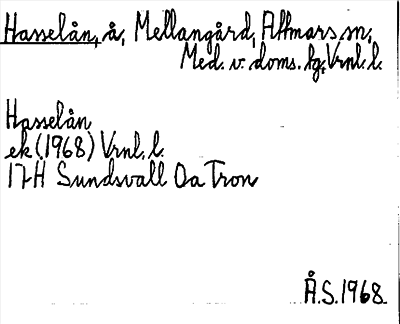 Hasselån, å, Mellangård, Attmars sn,
Med. v. doms. hg, Vrnl. l.
Hasselån
ek (1968) Vrnl. l.
17H Sundsvall Oa Tron
Å.S. 1968.